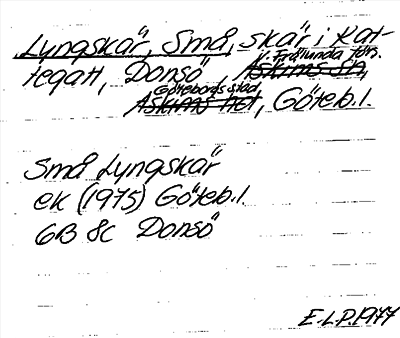 Lyngskär, Små, skär i Kat-
V. Frölunda förs.
tegatt, Donsö Askims sn,
Göteborgs stad
Askims hd, Göteb. l.
Små Lyngskär
ek (1975) Göteb. l.
6B 8c Donsö
E.L.P. 1977